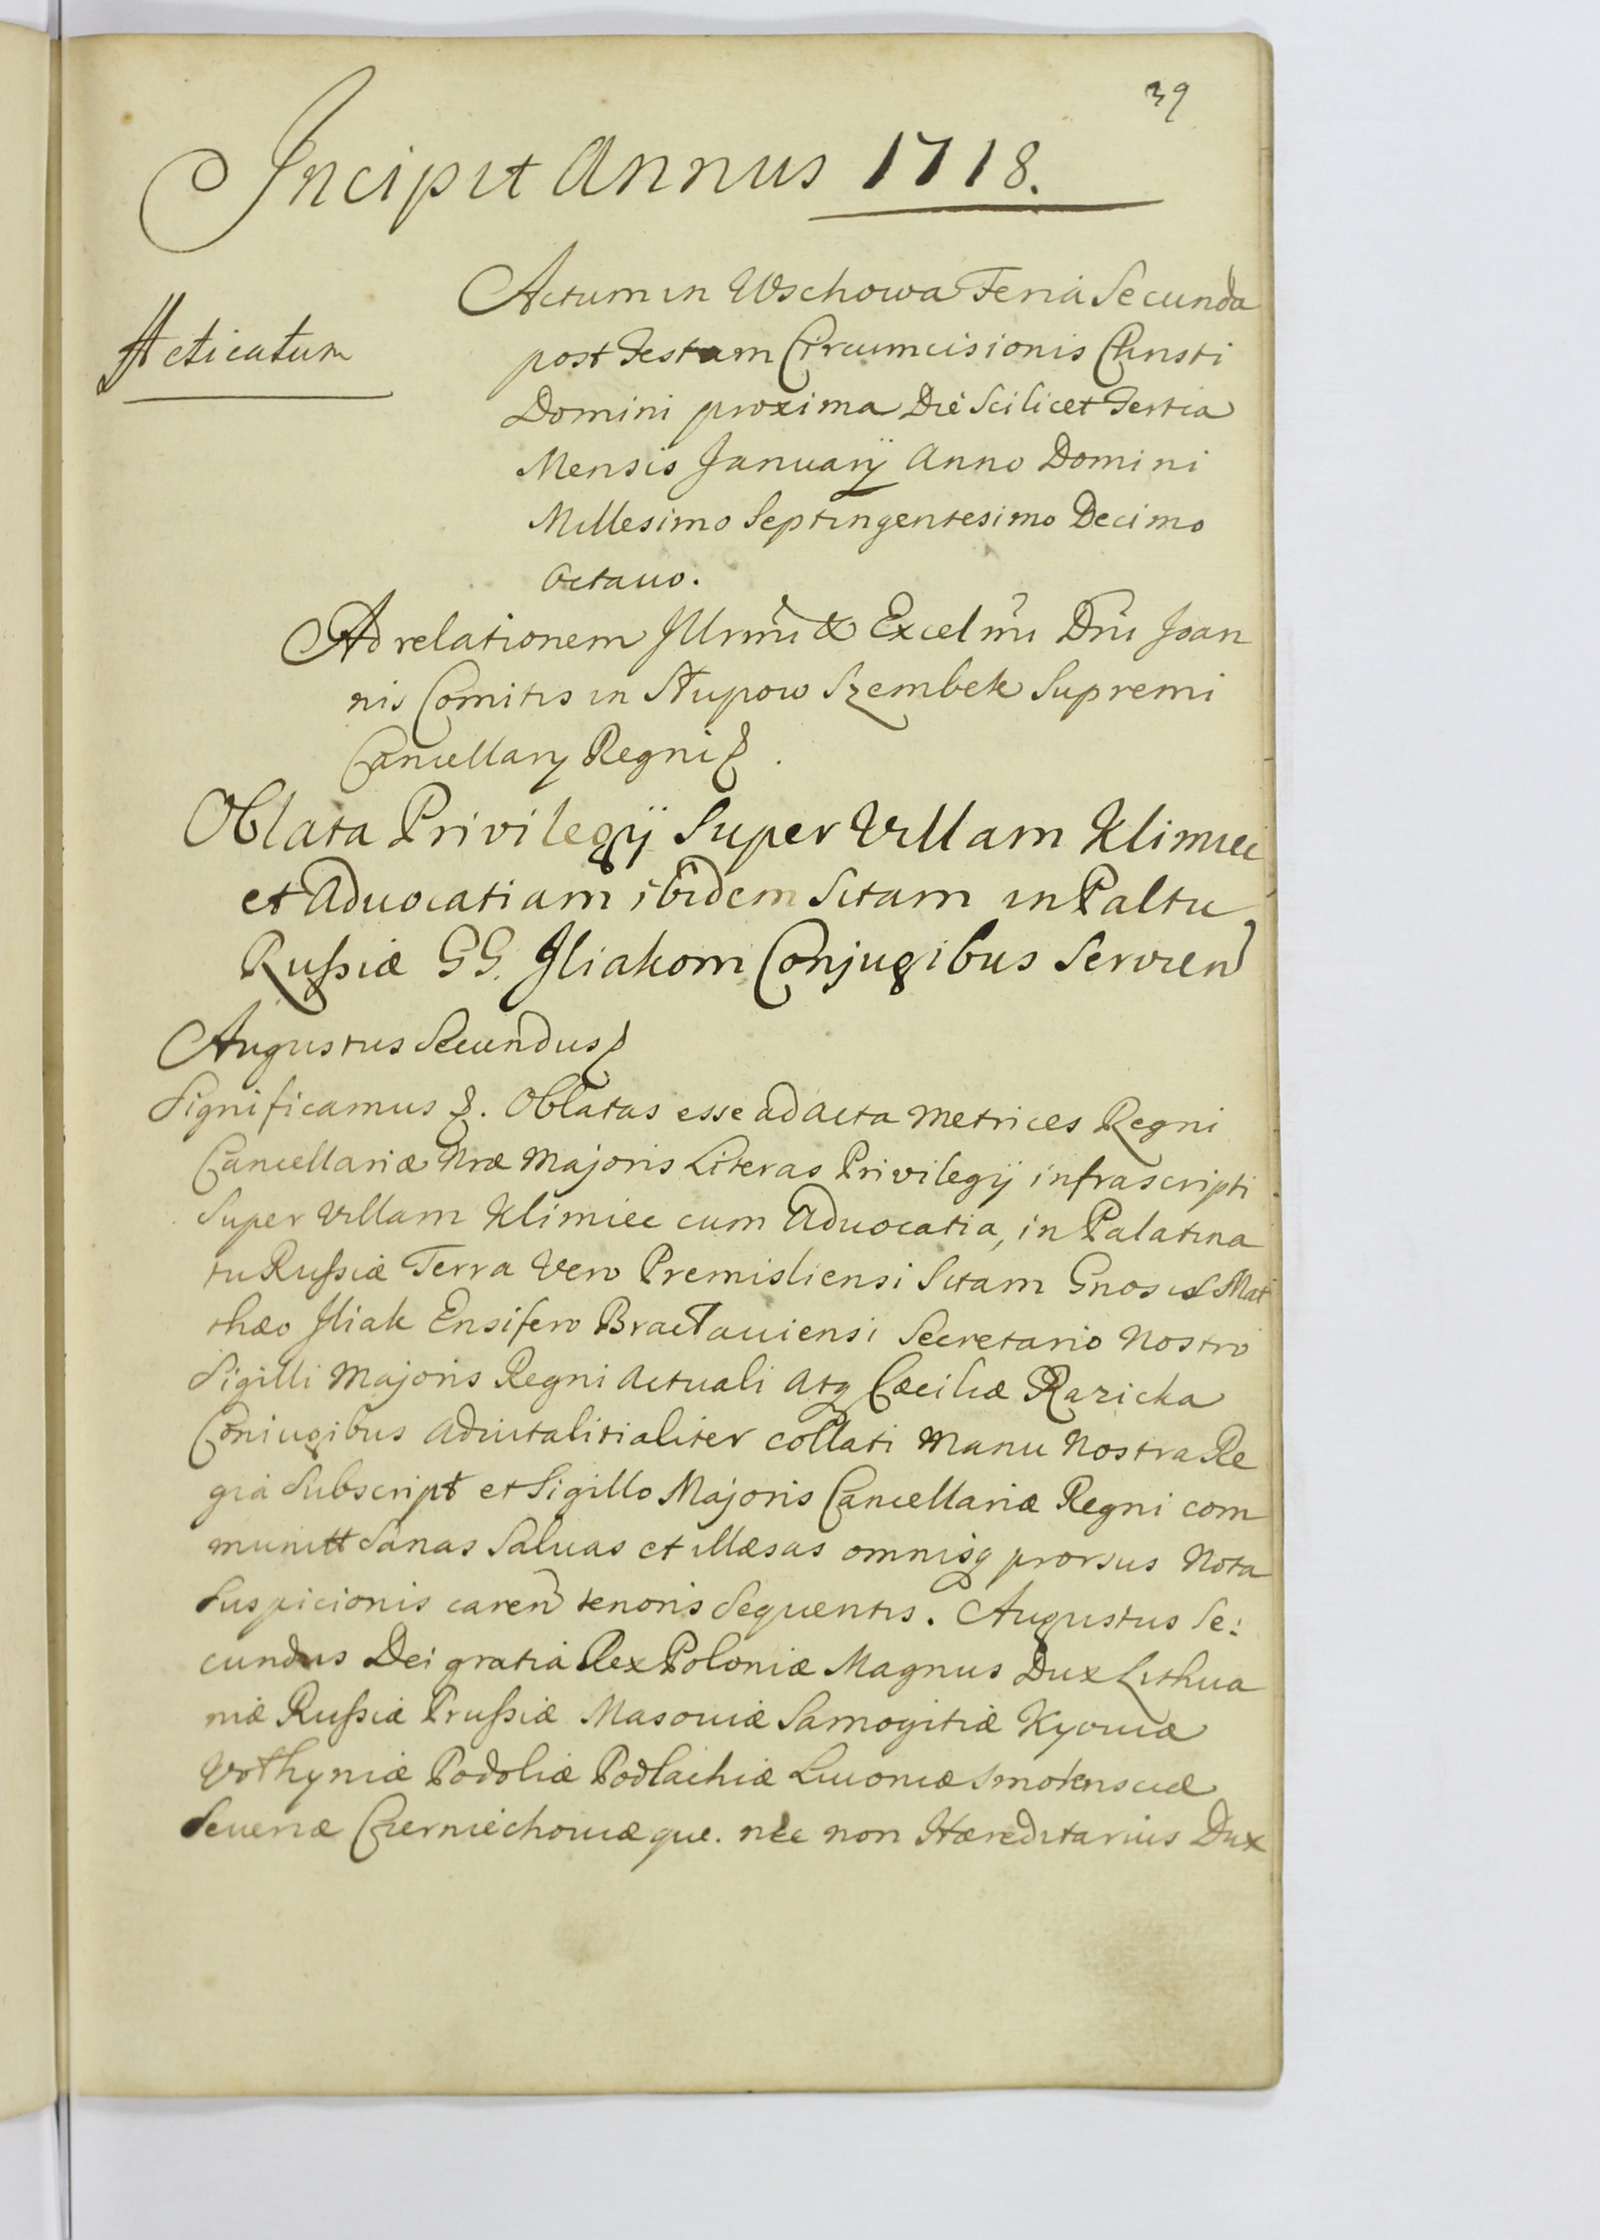 39
Incipit Annus 1718.
Acticatum
Actum in Wschowa Feria Secunda
post Festum Circumcisionis Christi
Domini proxima Die Scilicet Tertia
Mensis Januarij Anno Domini
Millesimo Septingentesimo Decimo
Octauo.
Ad relationem Illrmi & Excelmi Dni Joan
nis Comitis in Słupow Szembek Supremi
Cancellarij Regni
Oblata Privilegij Super Villam Klimiec
et Aduocatiam ibidem Sitam in Paltu
Russiæ GG. Iliakom Conjugibus Servien
Augustus Secundus
Significamus. Oblatas esse ad Acta Metrices Regni
Cancellariæ Nræ Majoris Literas Privilegij infrascripti
Super Villam Klimiec cum Aduocatia, in Palatina
tu Russiæ Terra Vero Premisliensi Sitam Gnosis Mat
thæo Iliak Ensifero Bractauiensi Secretario Nostro
Sigilli Majoris Regni Actuali Atq Cæciliæ Razicka
Coniugibus Aduitalitialiter collati Manu Nostra Re
gia Subscript et Sigillo Majoris Cancellariæ Regni com
munitt Sanas Saluas et illæsas omnisq prorsus Nota
Suspicionis caren tenoris Sequentis. Augustus Se:
cundus Dei gratia Rex Poloniæ Magnus Dux Lithua
niæ Russiæ Prussiæ Masouiæ Samogitiæ Kyouiæ
Volhyniæ Podoliæ Podlachiæ Liuoniæ Smolensciæ
Seueriæ Czerniechouiæque. nec non Hæreditarius Dux